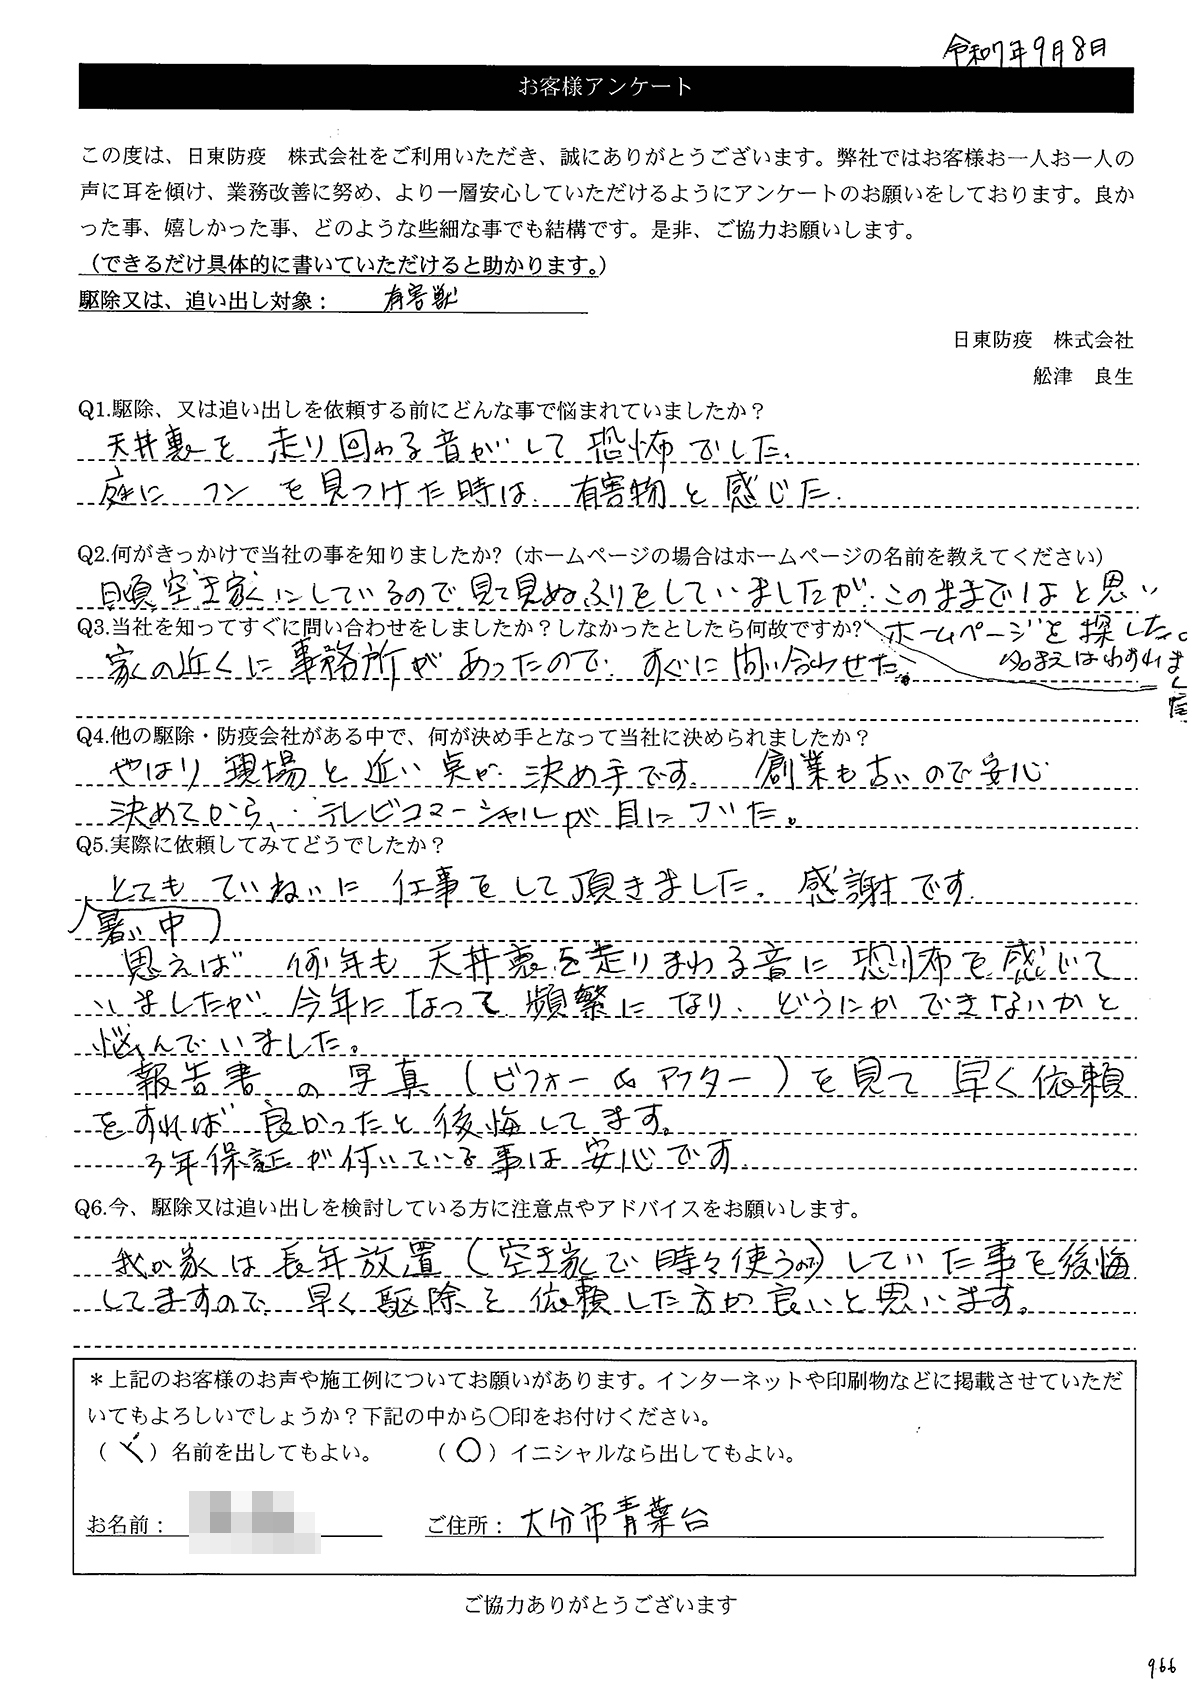 令和7年9月8日
お客様アンケート
この度は、日東防疫　株式会社をご利用いただき、誠にありがとうございます。弊社ではお客様お一人お一人の
声に耳を傾け、業務改善に努め、より一層安心していただけるようにアンケートのお願いをしております。良か
った事、嬉しかった事、どのような些細な事でも結構です。是非、ご協力お願いします。
（できるだけ具体的に書いていただけると助かります。）
駆除又は、追い出し対象：　有害獣
日東防疫　株式会社
舩津　良生
Q1.駆除、又は追い出しを依頼する前にどんな事で悩まれていましたか？
天井裏を走り回わる音がして恐怖でした.
庭にフンを見つけた時は、有害物と感じた.
Q2.何がきっかけで当社の事を知りましたか?（ホームページの場合はホームページの名前を教えてください）
日頃空き家にしているので、見て見ぬふりをしていましたが、このままではと思い
ホームページを探した。
Q3.当社を知ってすぐに問い合わせをしましたか？しなかったとしたら何故ですか?
家の近くに事務所があったので、すぐに問い合わせた
Q4.他の駆除・防疫会社がある中で、何が決め手となって当社に決められましたか？
やはり現場と近い点が、決め手です。創業も古いので安心
決めてから、テレビコマーシャルが目につゞいた。
Q5.実際に依頼してみてどうでしたか？
とてもていねいに仕事をして頂きました。感謝です
暑い中
思えば何年も天井裏を走りまわる音に恐怖を感じて
いましたが、今年になって頻繁になり、どうにかできないかと
悩んでいました。
報告書の写真（ビフォー&アフター）を見て早く依頼
をすれば良かったと後悔してます。
3年保証が付いている事は安心です
Q6.今、駆除又は追い出しを検討している方に注意点やアドバイスをお願いします。
我が家は長年放置（空き家で時々使うのみ）していた事を後悔
してますので、早く駆除を依頼した方が良いと思います。
＊上記のお客様のお声や施工例についてお願いがあります。インターネットや印刷物などに掲載させていただ
いてもよろしいでしょうか？下記の中から〇印をお付けください。
（　）名前を出してもよい。　（〇）イニシャルなら出してもよい。
お名前：　ご住所：大分市青葉台
ご協力ありがとうございます
966